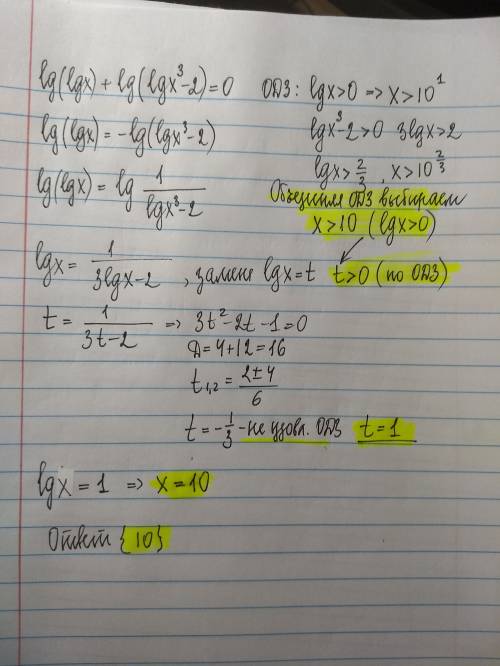 lg(lgx) + lg(lgx³-2)=0 ОДЗ: lgx>0 => x>10¹
lg(lgx) = -lg(lgx³-2) lgx³-2>0 3lgx>2
lg(lgx) = lg 1/(lgx³-2) lgx>2/3, x>10^(2/3)
Объединяя ОДЗ выбираем
x>10 (lgx>0)
lgx = 1/(3lgx-2), замена lgx=t t>0 (по ОДЗ)
t = 1/(3t-2) => 3t²-2t-1=0
Д=4+12=16
t1,2 = (2±4)/6
t = -1/3 - не удовл. ОДЗ t=1
lgx = 1 => x=10
Ответ {10}